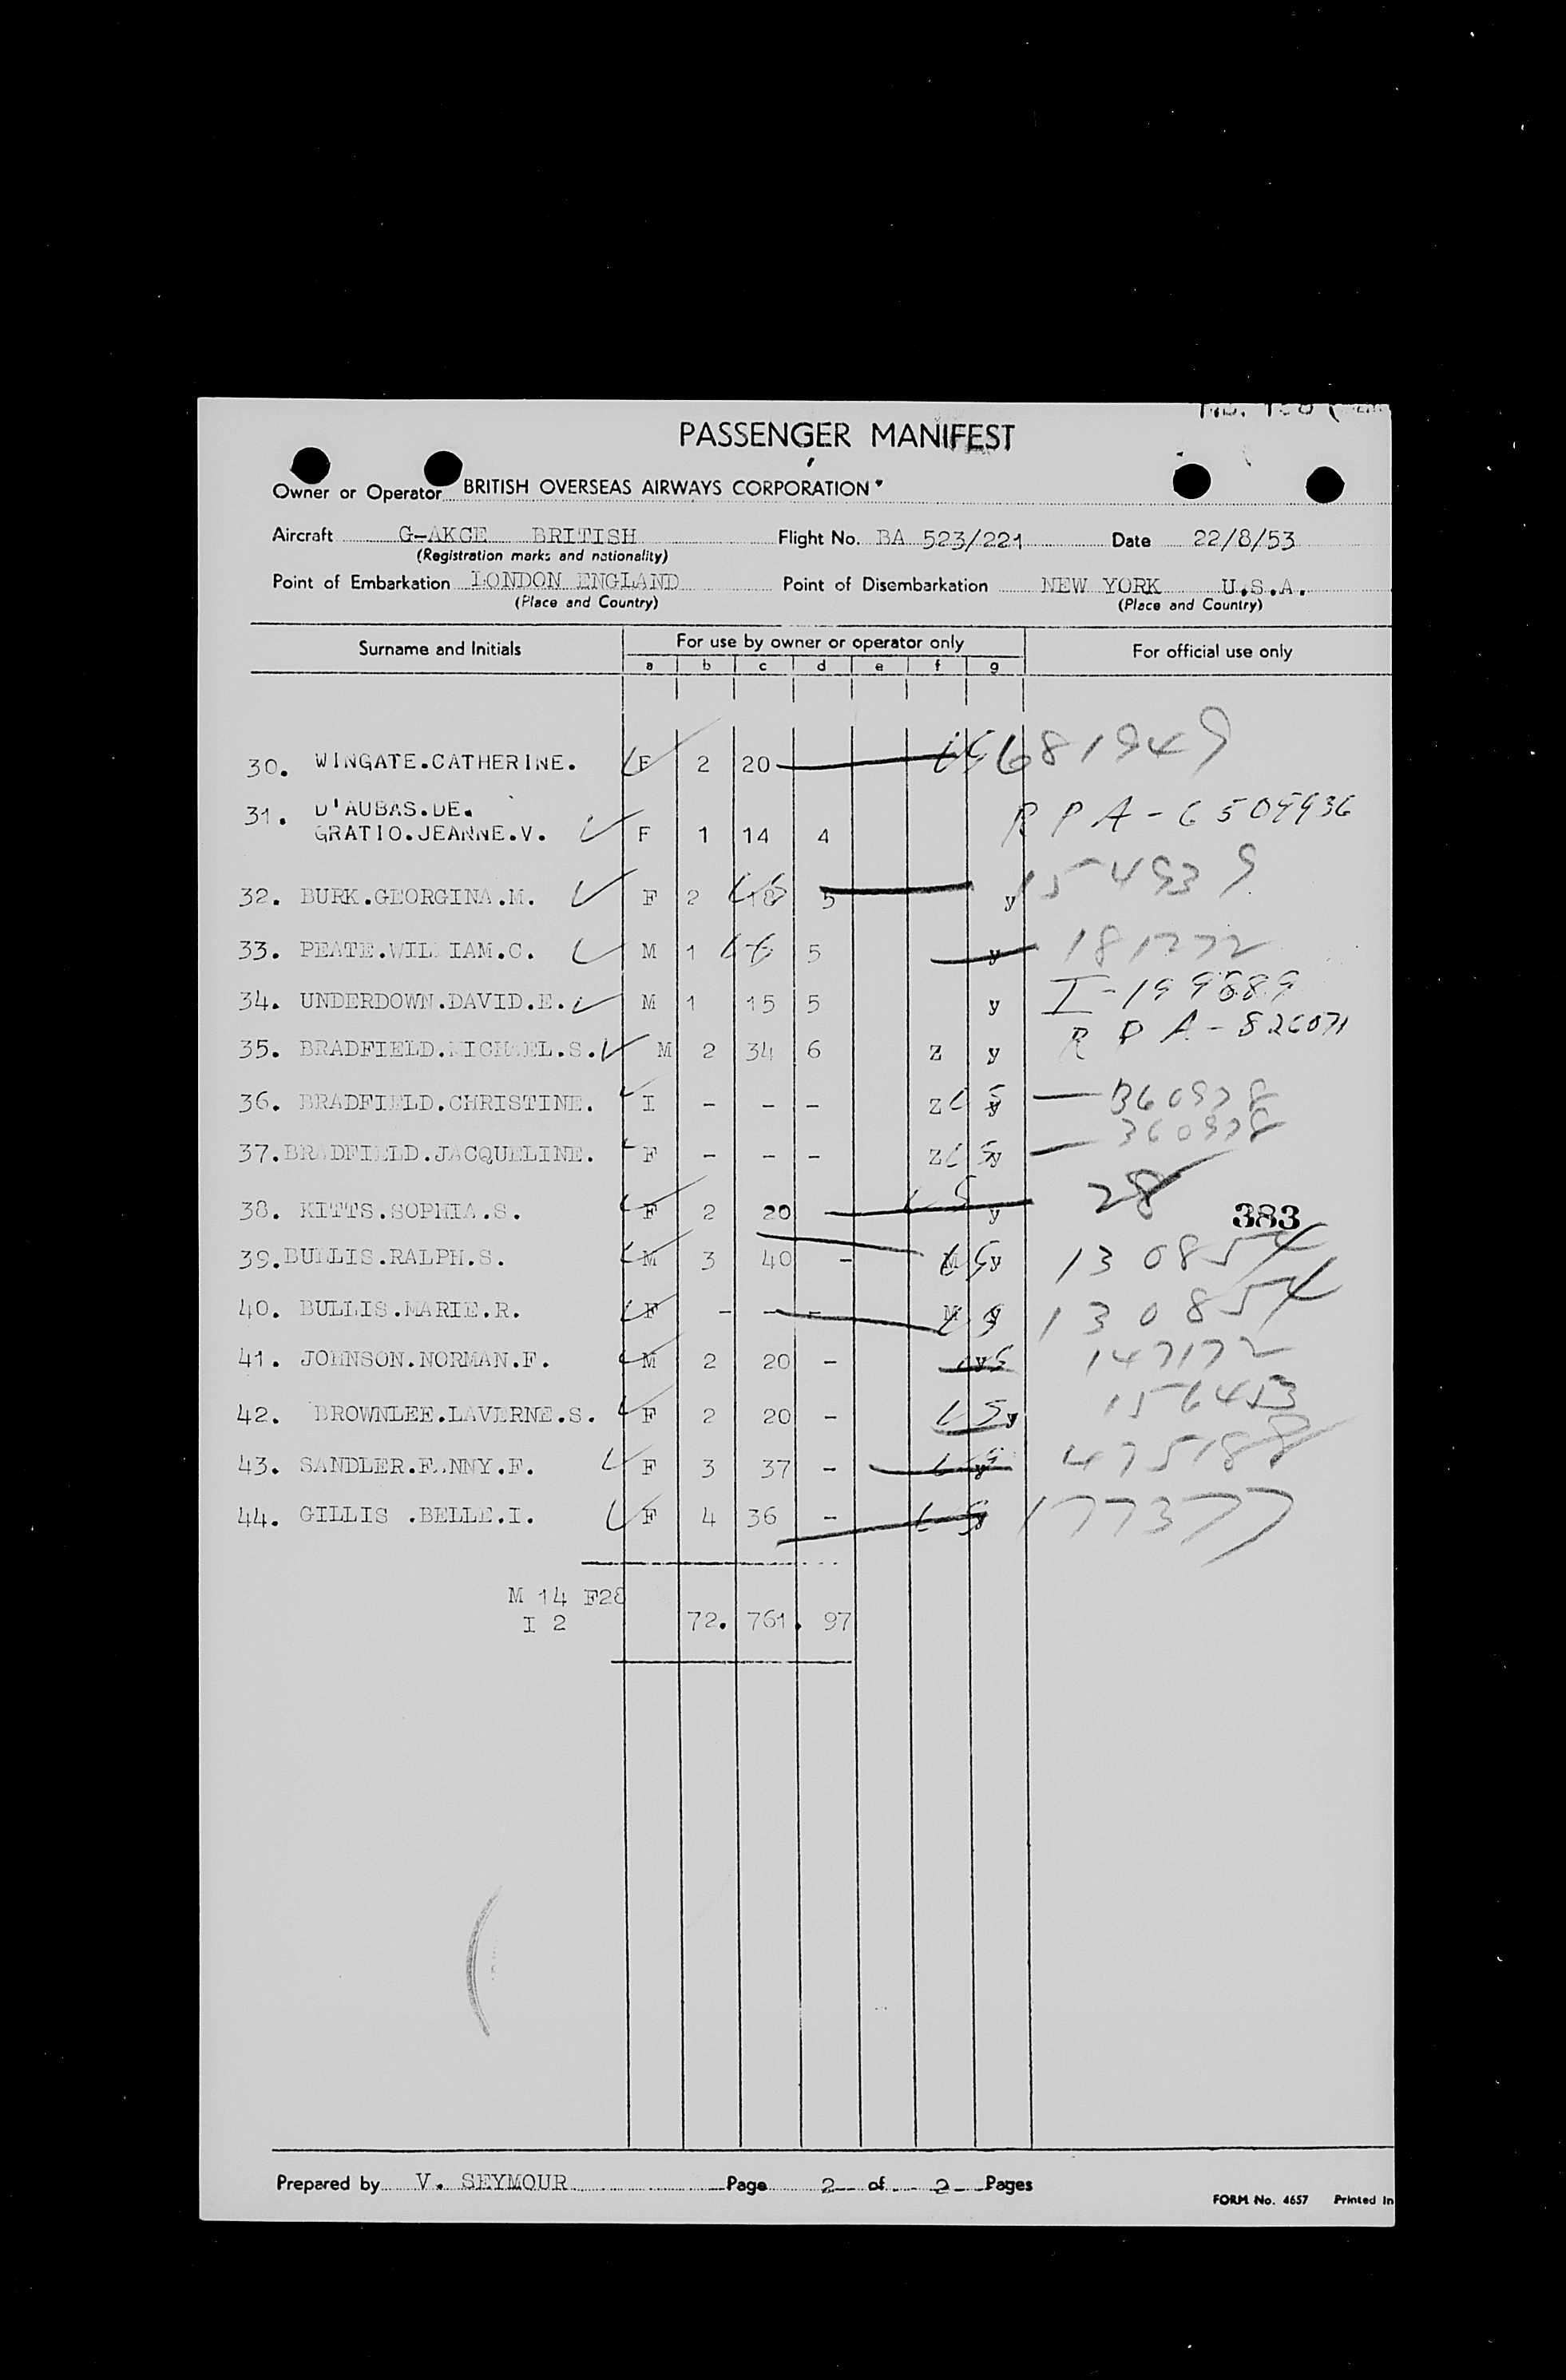 PASSENGER MANIFEST
Owner or Operator BRITISH OVERSEAS AIRWAYS CORPORATION
Aircraft G-AKCE BRITISH Flight No. BA 523/221 Date 22/8/53
(Registration marks and nationality)
Point of Embarkation LONDON ENGLAND Point of Disembarkation NEW YORK U.S.A.
(Place and Country) (Place and Country)
Surname and Initials For use by owner or operator only For official use only
a b c d e f g
30. WINGATE.CATHERINE. F 2 20 681949
31. D'AUBAS.DE.
GRATIO.JEANNE.V. F 1 14 4 RPA-6509936
32. BURK.GEORGINA.M. F 2 18 5 y 154939
33. PEATE.WILLIAM.C. M 1 5 y 181772
34. UNDERDOWN.DAVID.E. M 1 15 5 y I-199889
35. BRADFIELD.MICHAEL.S. M 2 34 6 Z y RPA-826071
36. BRADFIELD.CHRISTINE. I - - - Z y 360978
37. BRADFIELD.JACQUELINE. F - - - Z y 360978
38. KITTS.SOPHIA.S. F 2 20 - y 28
383
39. BULLIS.RALPH.S. M 3 40 - M y 130854
40. BULLIS.MARIE.R. F - - - M y 130854
41. JOHNSON.NORMAN.F. M 2 20 - y 147172
42. BROWNLEE.LAVERNE.S. F 2 20 - y 156453
43. SANDLER.FANNY.F. F 3 37 - y 475188
44. GILLIS .BELLE.I. F 4 36 - y 177377
M 14 F28
I 2 72. 761. 97
Prepared by V. SEYMOUR Page 2 of 2 Pages
FORM No. 4657 Printed in